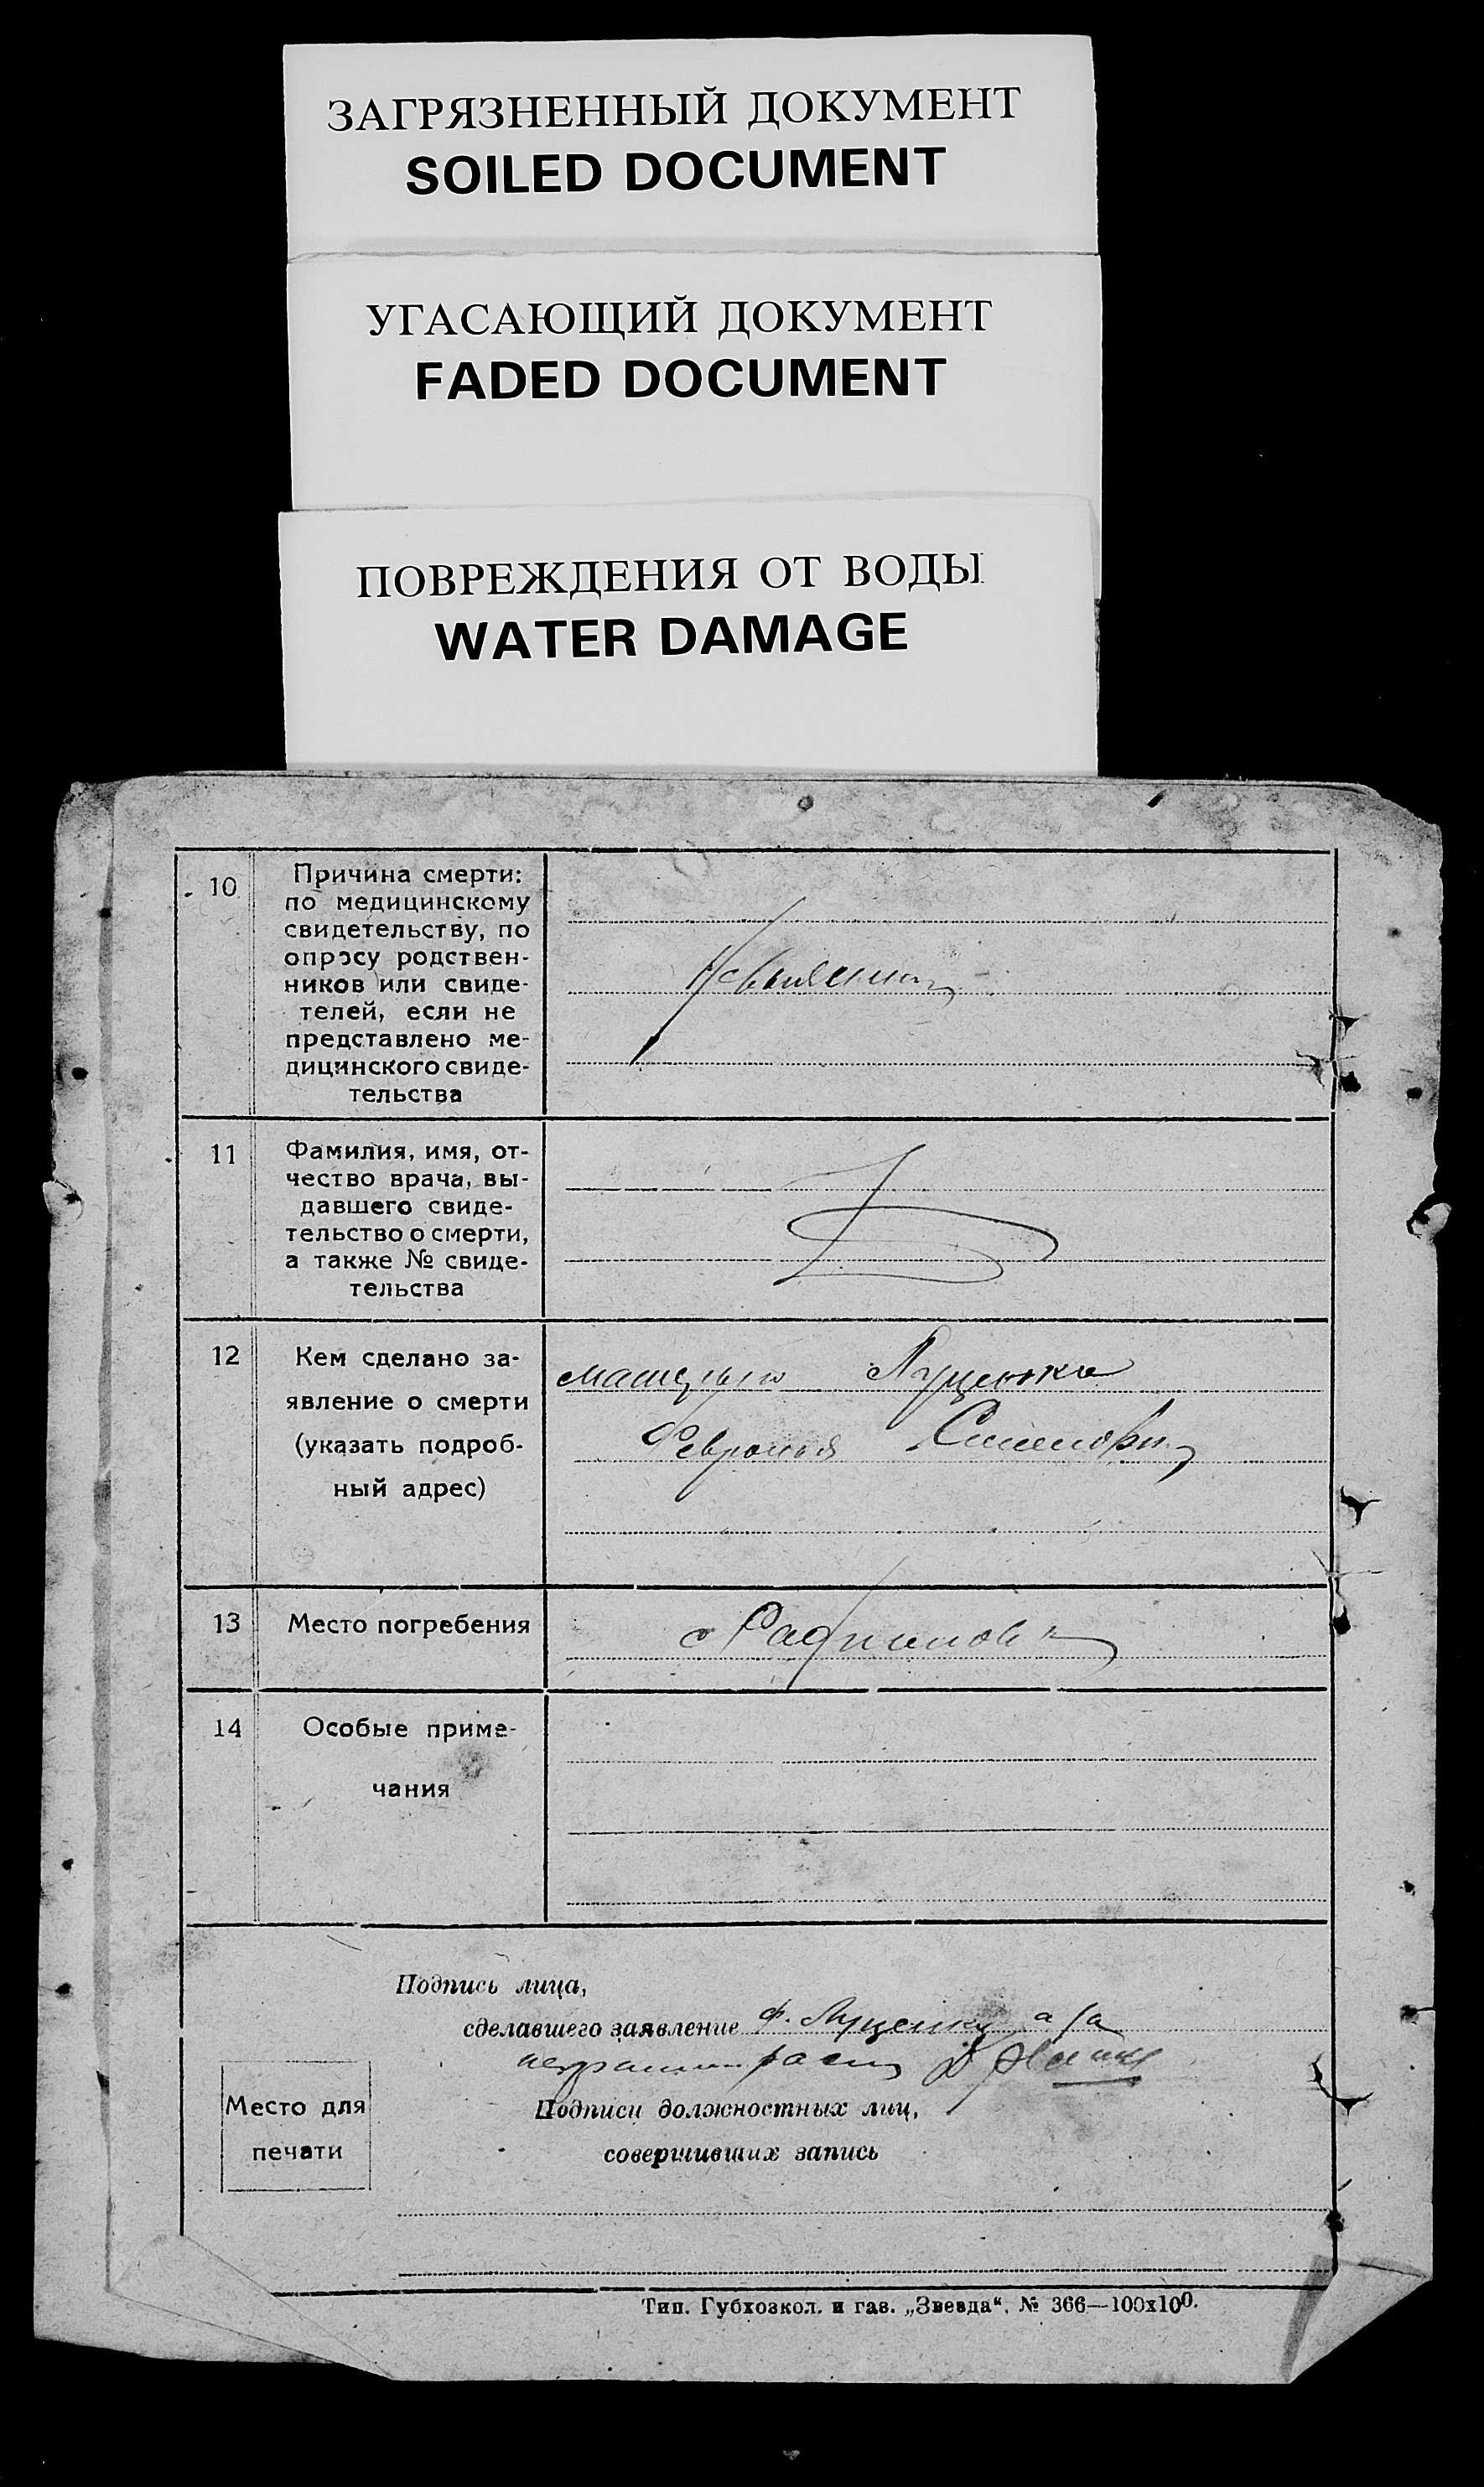 ЗАГРЯЗНЕННЫЙ ДОКУМЕНТ
SOILED DOCUMENT
УГАСАЮЩИЙ ДОКУМЕНТ
FADED DOCUMENT
ПОВРЕЖДЕНИЯ ОТ ВОДЫ
WATER DAMAGE
10
Причина смерти:
по медицинскому
свидетельству, по
опросу родствен-
ников или свиде-
телей, если не
представлено ме-
дицинского свиде-
тельства
11
Фамилия, имя, от-
чество врача, вы-
давшего свиде-
тельство о смерти,
а также № свиде-
тельства
12
Кем сделано за-
явление о смерти
(указать подроб-
ный адрес)
Луценко
Феврония
13
Место погребения
14
Особые приме-
чания
Подпись лица,
сделавшего заявление Ф. Луценко а за
Подписи должностных лиц,
совершивших запись
Место для
печати
Тип. Губхозкол. и газ. „Звезда“. № 366—100х100.